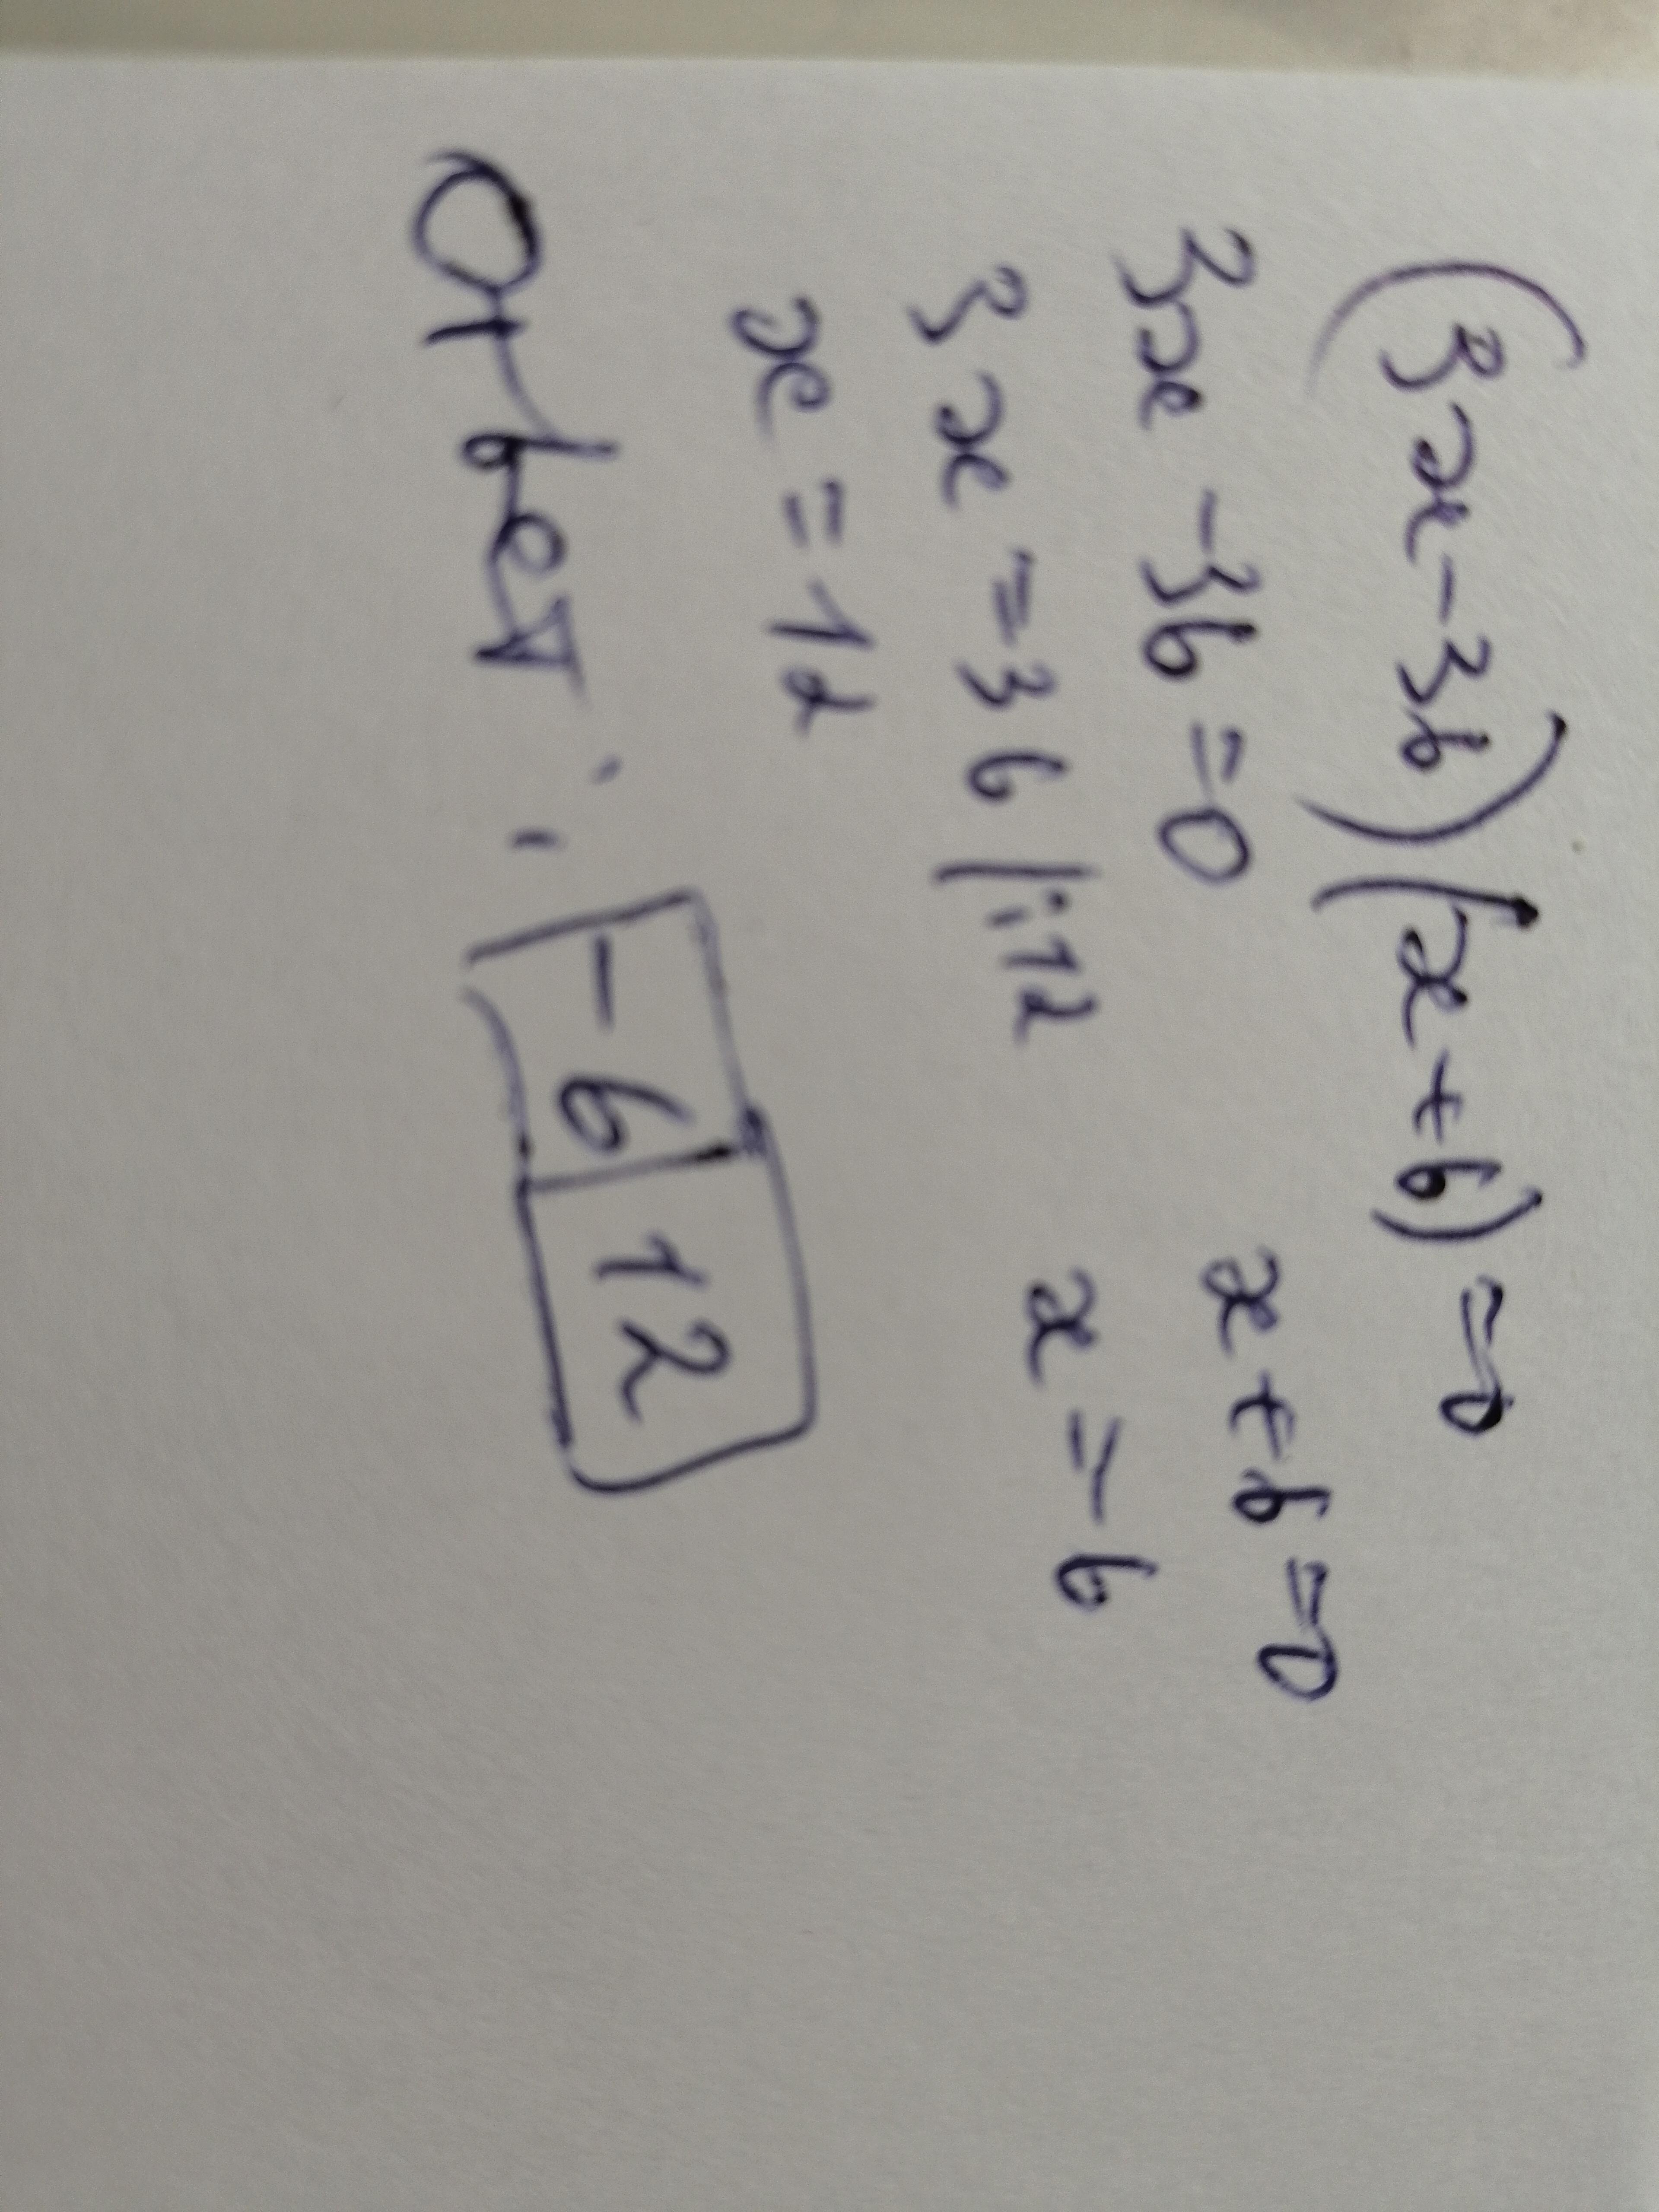 (3x-36)(x+6)=0
3x-36=0 x+6=0
3x=36|:12 x=-6
x=12
Ответ: -6 12